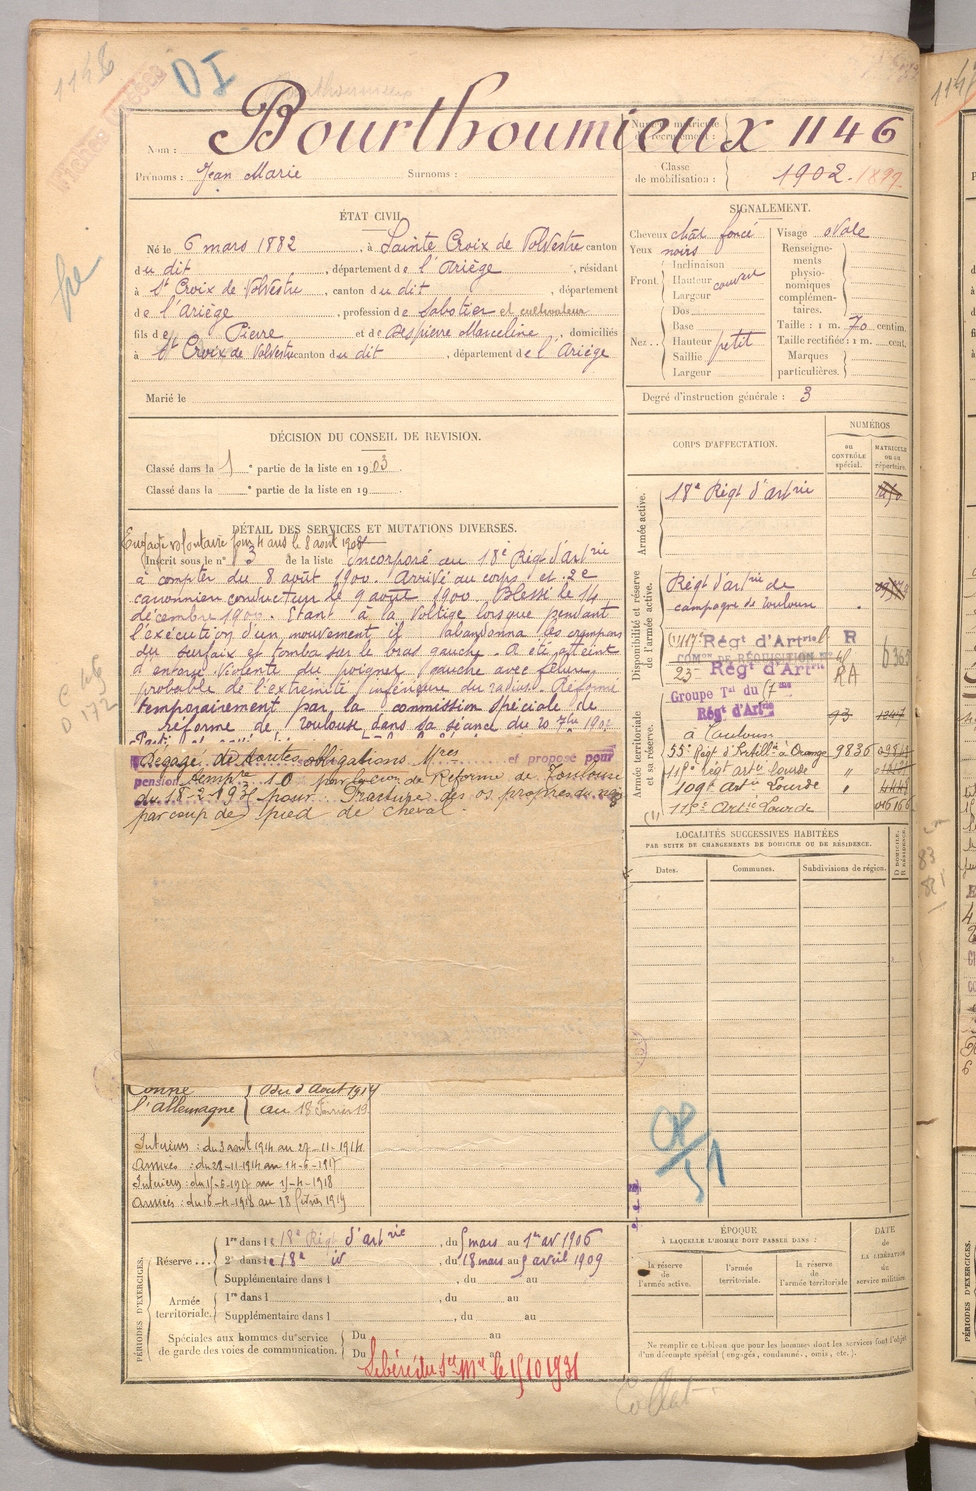 1146
DI
Nom : Bourthoumieux
Numéro matricule du recrutement : 1146
Prénoms : Jean Marie Surnoms :
Classe de mobilisation : 1902. 1899
ÉTAT CIVIL.
Né le 6 mars 1882, à Sainte Croix de Volvestre canton
du dit, département de l'Ariège, résidant
à St Croix de Volvestre, canton du dit, département
de l'Ariège, profession de sabotier et cultivateur
fils de Pierre et de Despierre Marceline, domiciliés
à St Croix de Volvestre canton du dit, département de l'Ariège
Marié le
SIGNALEMENT.
Cheveux chât foncé
Yeux noirs
Front Inclinaison
Hauteur couvert
Largeur
Nez Dos
Base
Hauteur petit
Saillie
Largeur
Visage ovale
Renseignements physionomiques complémentaires.
Taille : 1 m. 70 centim.
Taille rectifiée : 1 m. cent.
Marques particulières.
Degré d'instruction générale : 3
DÉCISION DU CONSEIL DE REVISION.
Classé dans la 1e partie de la liste en 1903.
Classé dans la e partie de la liste en 19
DÉTAIL DES SERVICES ET MUTATIONS DIVERSES.
Engagé volontaire pour 4 ans le 8 août 190
Inscrit sous le n° 3 de la liste incorporé au 18e Régt d'Artrie
à compter du 8 août 1900. Arrivé au corps et 2e
canonnier conducteur le 9 août 1900. Blessé le 14
décembre 1900. Etant à la voltige lorsque pendant
l'exécution d'un mouvement, il abandonna les crampons
du surfaix et tomba sur le bras gauche. A été atteint
d'entorse violente du poignet gauche avec fêlure
probable de l'extrémité inférieure du radius. Réformé
temporairement par la commission spéciale de
réforme de Toulouse dans sa séance du 20 7bre 190
Dégagé de toutes obligations Mres et proposé pour
pension tempre 10 par la con de Réforme de Toulouse
du 18-2-193 pour Fracture des os propres du nez
par coup de pied de cheval
CORPS D'AFFECTATION.
NUMÉROS
au CONTRÔLE spécial.
MATRICULE ou au répertoire.
Armée active.
18e Régt d'artrie
Disponibilité et réserve de l'armée active.
Régt d'artrie de
campagne de Toulouse
Régt d'Artrie R
COMon DE RÉQUISITION
23e Régt d'Artrie RA
Groupe Tal du 17me
Régt d'Artrie
Armée territoriale et sa réserve.
à Toulouse
55e Régt d'Artillie à Orange 9836
115e régt artie lourde "
109e Artie Lourde "
115e Artie Lourde
LOCALITÉS SUCCESSIVES HABITÉES
PAR SUITE DE CHANGEMENTS DE DOMICILE OU DE RÉSIDENCE.
Dates. Communes. Subdivisions de région. D DOMICILE. R RÉSIDENCE.
l'Allemagne Du 3 Août 1914
au 18 Février 19
Intérieur : du 3 août 1914 au 27-11-1914
Armées : du 28-11-1914 au 14-6-1917
Intérieur : du 15-6-1917 au 15-4-1918
Armées : du 16-4-1918 au 18 février 1919
PÉRIODES D'EXERCICES.
Réserve 1re dans le 18e Régt d'artrie, du 5 mars au 1er av 1906
2e dans le 18e id, du 18 mars au 5 avril 1909
Supplémentaire dans l , du au
Armée territoriale. 1re dans l , du au
Supplémentaire dans l , du au
Spéciales aux hommes du service de garde des voies de communication. Du au
Du au
Libéré du Sce Mre le 15/10 1931
ÉPOQUE
À LAQUELLE L'HOMME DOIT PASSER DANS :
la réserve de l'armée active.
l'armée territoriale.
la réserve de l'armée territoriale
DATE de LA LIBÉRATION du service militaire.
Ne remplir ce tableau que pour les hommes dont les services font l'objet
d'un décompte spécial (engagés, condamnés, omis, etc.).